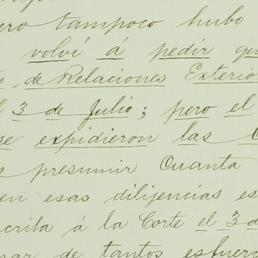 ero tampoco hubo
volví á pedir que
de Relaciones Exterio
3 de Julio; pero el
se expidieron las
presumir Cuanta
en esas dilijencias es
crita á la Corte el 3 de
de tantos esfuer